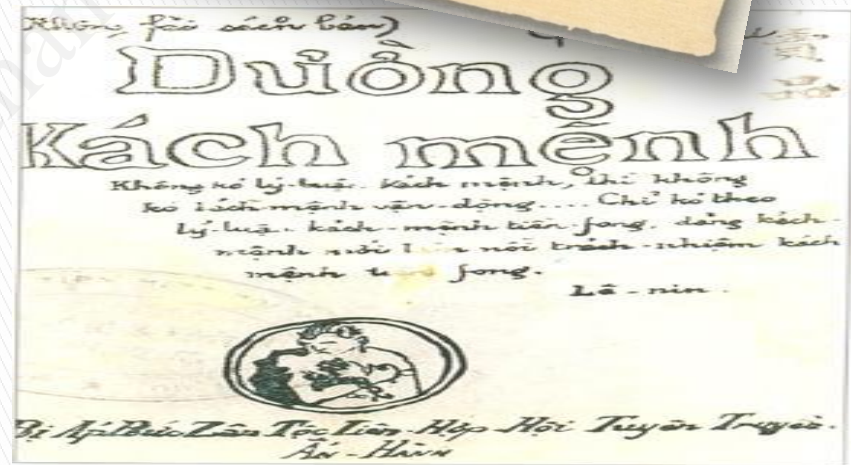 Không fải sách bán)
賣
品
Đường
Kách mệnh
Không kó lý-luận kách mệnh, thì không
kó kách mệnh vận-động.... Chỉ kó theo
lý-luận kách-mệnh tiền-fong, đảng kách-
mệnh mới làm nổi trách-nhiệm kách
mệnh tiền fong.
Lê-nin.
Bị Áp Bức Zân Tộc Liên-Hợp Hội Tuyên Truyền.
Ấn-Hành